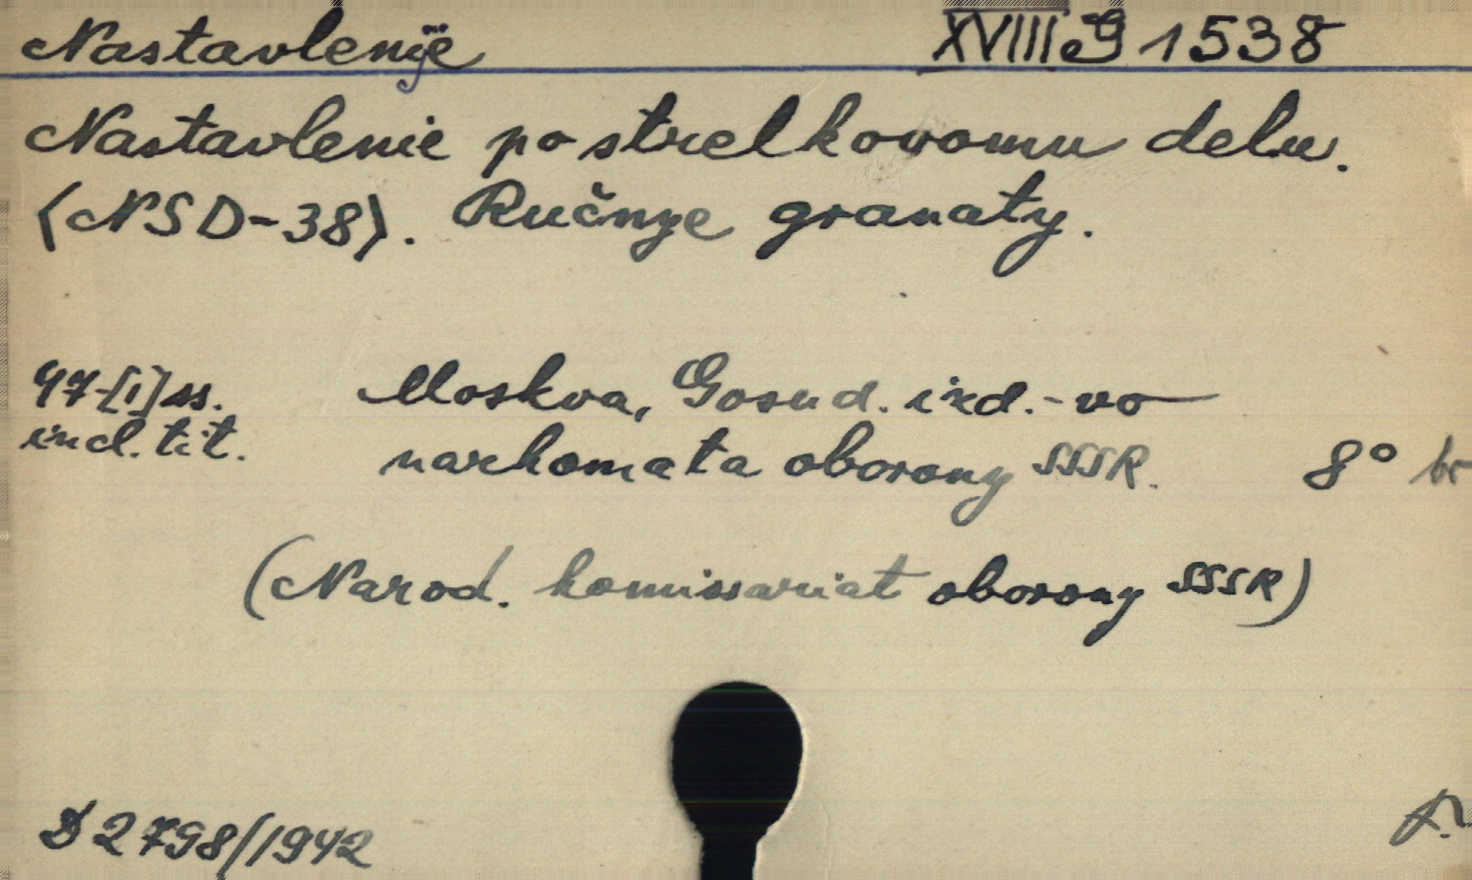 Nastavlenije XVIII G 1538
Nastavlenie po strelkovomu delu.
(NSD-38). Ručnye granaty.
97-[1] ss. Moskva, Gosud. izd.-vo
incl. tit. narkomata oborony SSSR. 8° br
(Narod. komissariat oborony SSSR)
D 2798/1942